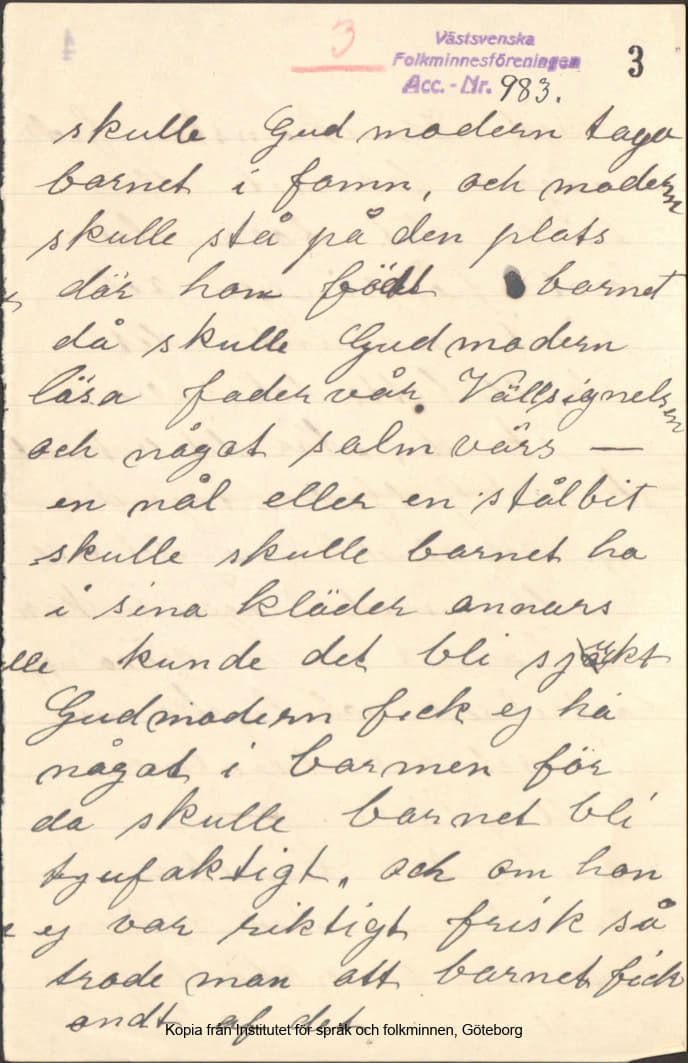 3
Västsvenska
Folkminnesföreningen
Acc.-Nr. 983.
3
skulle Gudmodern taga
barnet i famn, och modern
skulle stå på den plats
där hon födt barnet
då skulle Gudmodern
läsa fader vår Vällsignelsen
och något salm värs —
en nål eller en stålbit
skulle skulle barnet ha
i sina kläder annars
lle kunde det bli sjukt
Gudmodern fick ej ha
något i barmen för
da skulle barnet bli
tjufaktigt, och om hon
ej var riktigt frisk så
trode man att barnet fick
ondt af det
Kopia från Institutet för språk och folkminnen, Göteborg